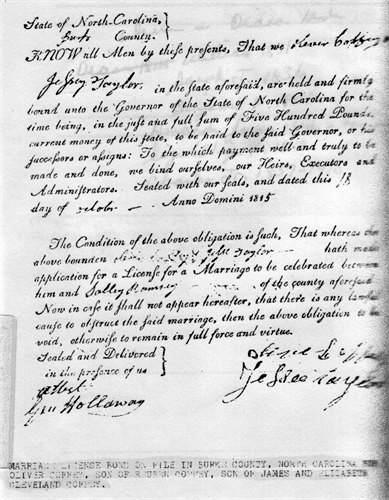 State of North-Carolina,
Burk County.
KNOW all Men by these presents, That we Oliver Coffey
Jessey Taylor in the state aforesaid, are held and firmly
bound unto the Governor of the State of North Carolina for the
time being, in the just and full sum of Five Hundred Pounds,
current money of this state, to be paid to the said Governor, or his
successors or assigns: To the which payment well and truly to be
made and done, we bind ourselves, our Heirs, Executors and
Administrators. Sealed with our seals, and dated this 18
day of october Anno Domini 1815
The Condition of the above obligation is such, That whereas the
above bounden Taylor hath made
application for a License for a Marriage to be celebrated between
him and Salley of the county aforesaid
Now in case it shall not appear hereafter, that there is any lawful
cause to obstruct the said marriage, then the above obligation to be
void, otherwise to remain in full force and virtue.
Sealed and Delivered
in the presence of us
attest
Holloway
Jessee Taylor
MARRIAGE LICENSE BOND ON FILE IN BURKE COUNTY, NORTH CAROLINA
OLIVER COFFEY, SON OF REUBEN COFFEY, SON OF JAMES AND ELIZABETH
CLEVELAND COFFEY.